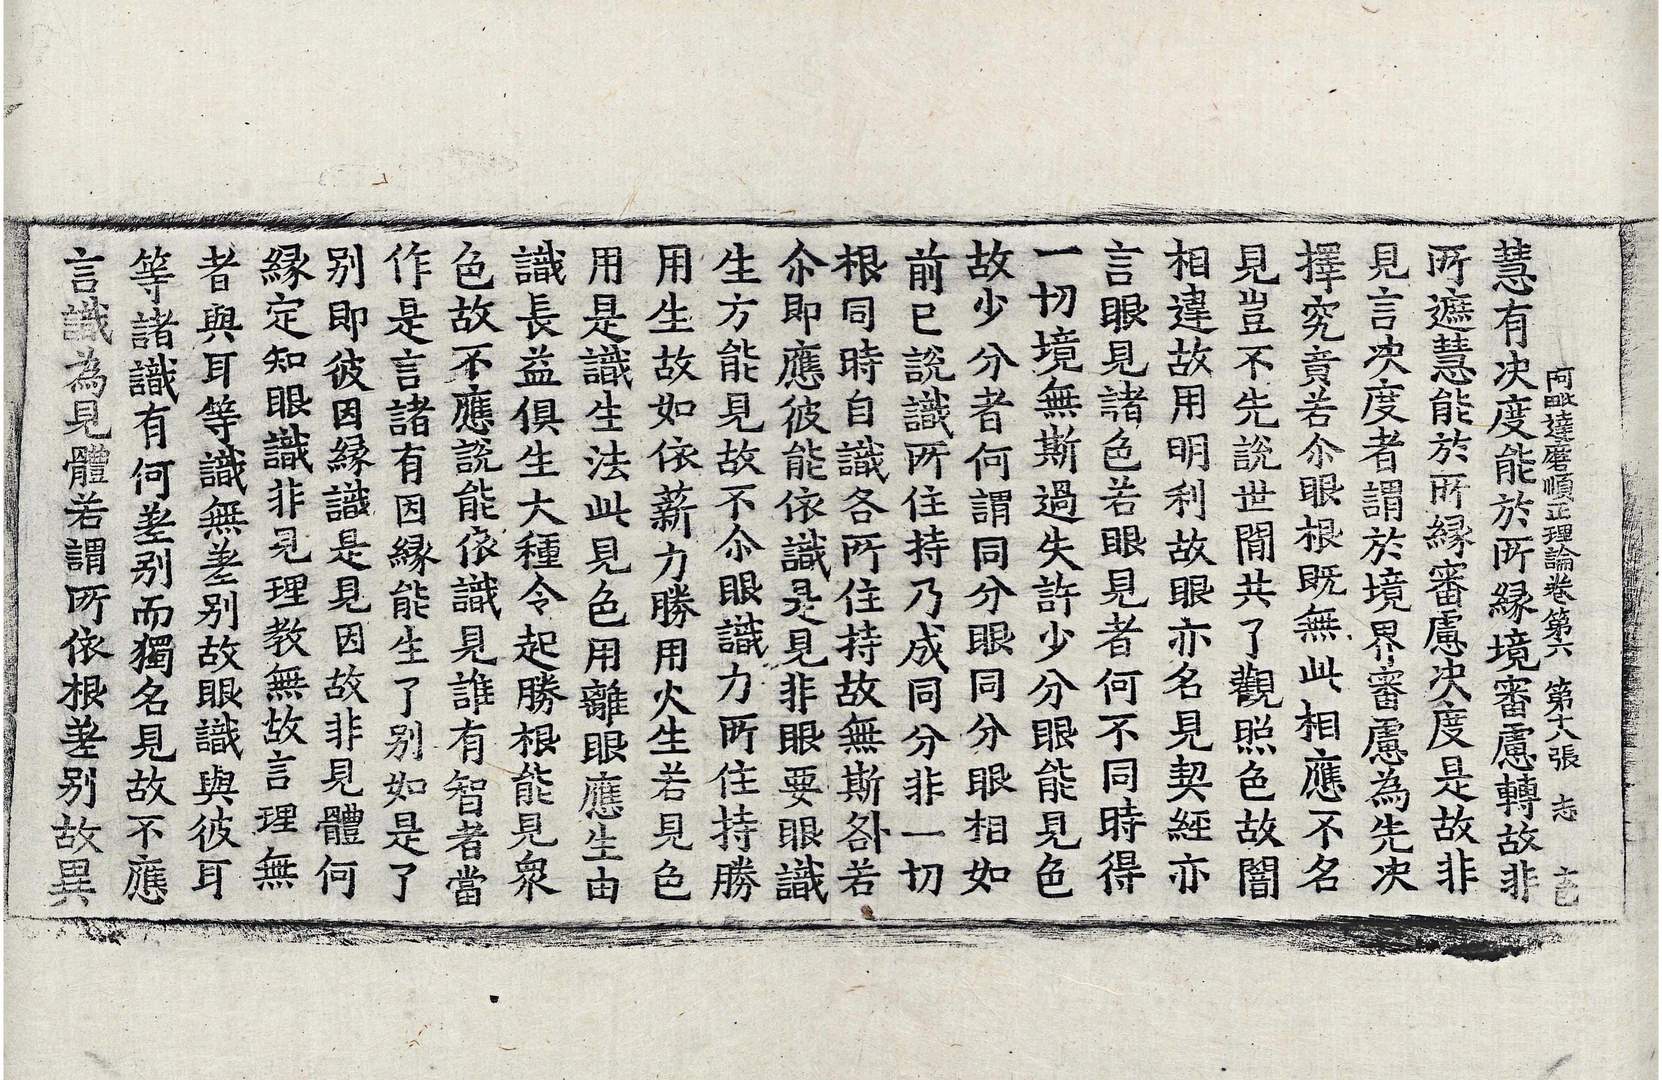 阿毗達磨順正理論卷第六　第十八張　志
慧有決度能於所緣境審慮轉故非
所遮慧能於所緣審慮決度是故非
見言決度者謂於境界審慮為先決
擇究竟若尒眼根既無此相應不名
見豈不先說世間共了觀照色故闇
相違故用明利故眼亦名見契經亦
言眼見諸色若眼見者何不同時得
一切境無斯過失許少分眼能見色
故少分者何謂同分眼同分眼相如
前已說識所住持乃成同分非一切
根同時自識各所住持故無斯咎若
尒即應彼能依識是見非眼要眼識
生方能見故不尒眼識力所住持勝
用生故如依薪力勝用火生若見色
用是識生法此見色用離眼應生由
識長益俱生大種令起勝根能見眾
色故不應說能依識見誰有智者當
作是言諸有因緣能生了別如是了
別即彼因緣識是見因故非見體何
緣定知眼識非見理教無故言理無
者與耳等識無差別故眼識與彼耳
等諸識有何差別而獨名見故不應
言識為見體若謂所依根差別故異